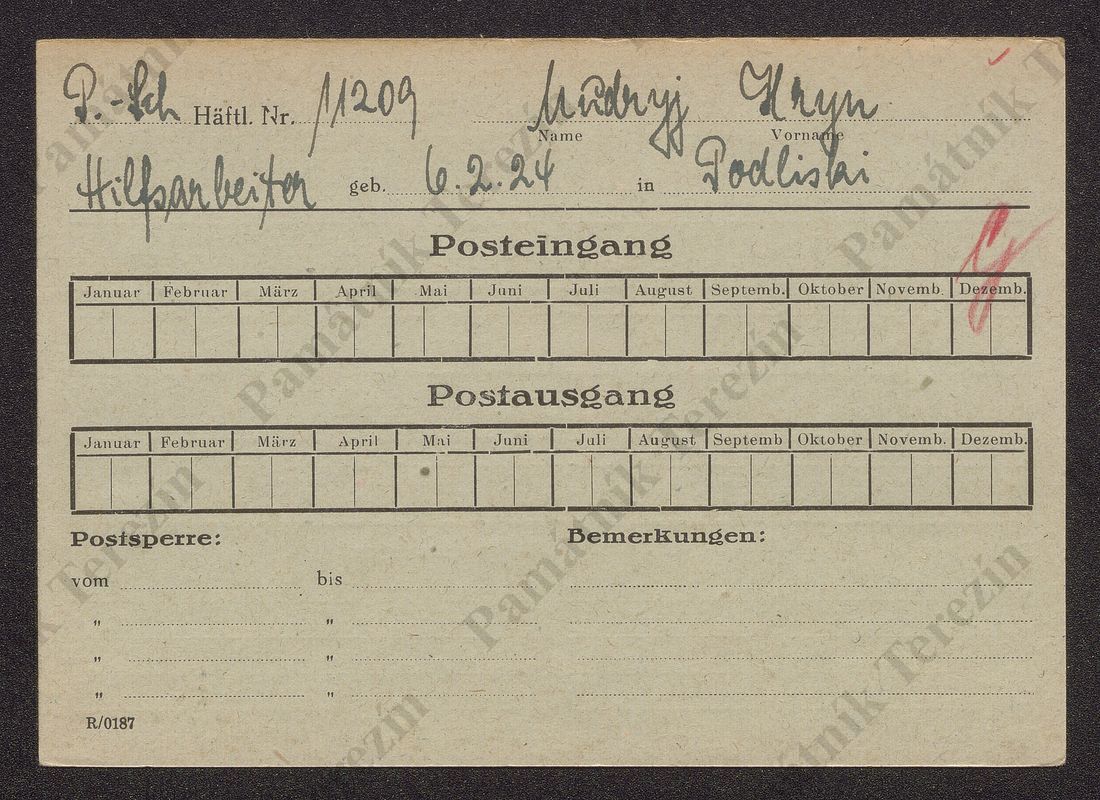 P.-Sch Häftl. Nr. 11209 Mudryj Hryn
Name Vorname
Hilfsarbeiter geb. 6.2.24 in Podliski
Posteingang
Januar Februar März April Mai Juni Juli August Septemb. Oktober Novemb. Dezemb.
Postausgang
Januar Februar März April Mai Juni Juli August Septemb Oktober Novemb. Dezemb.
Postsperre: Bemerkungen:
vom bis
" "
" "
" "
R/0187
Památník Terezín